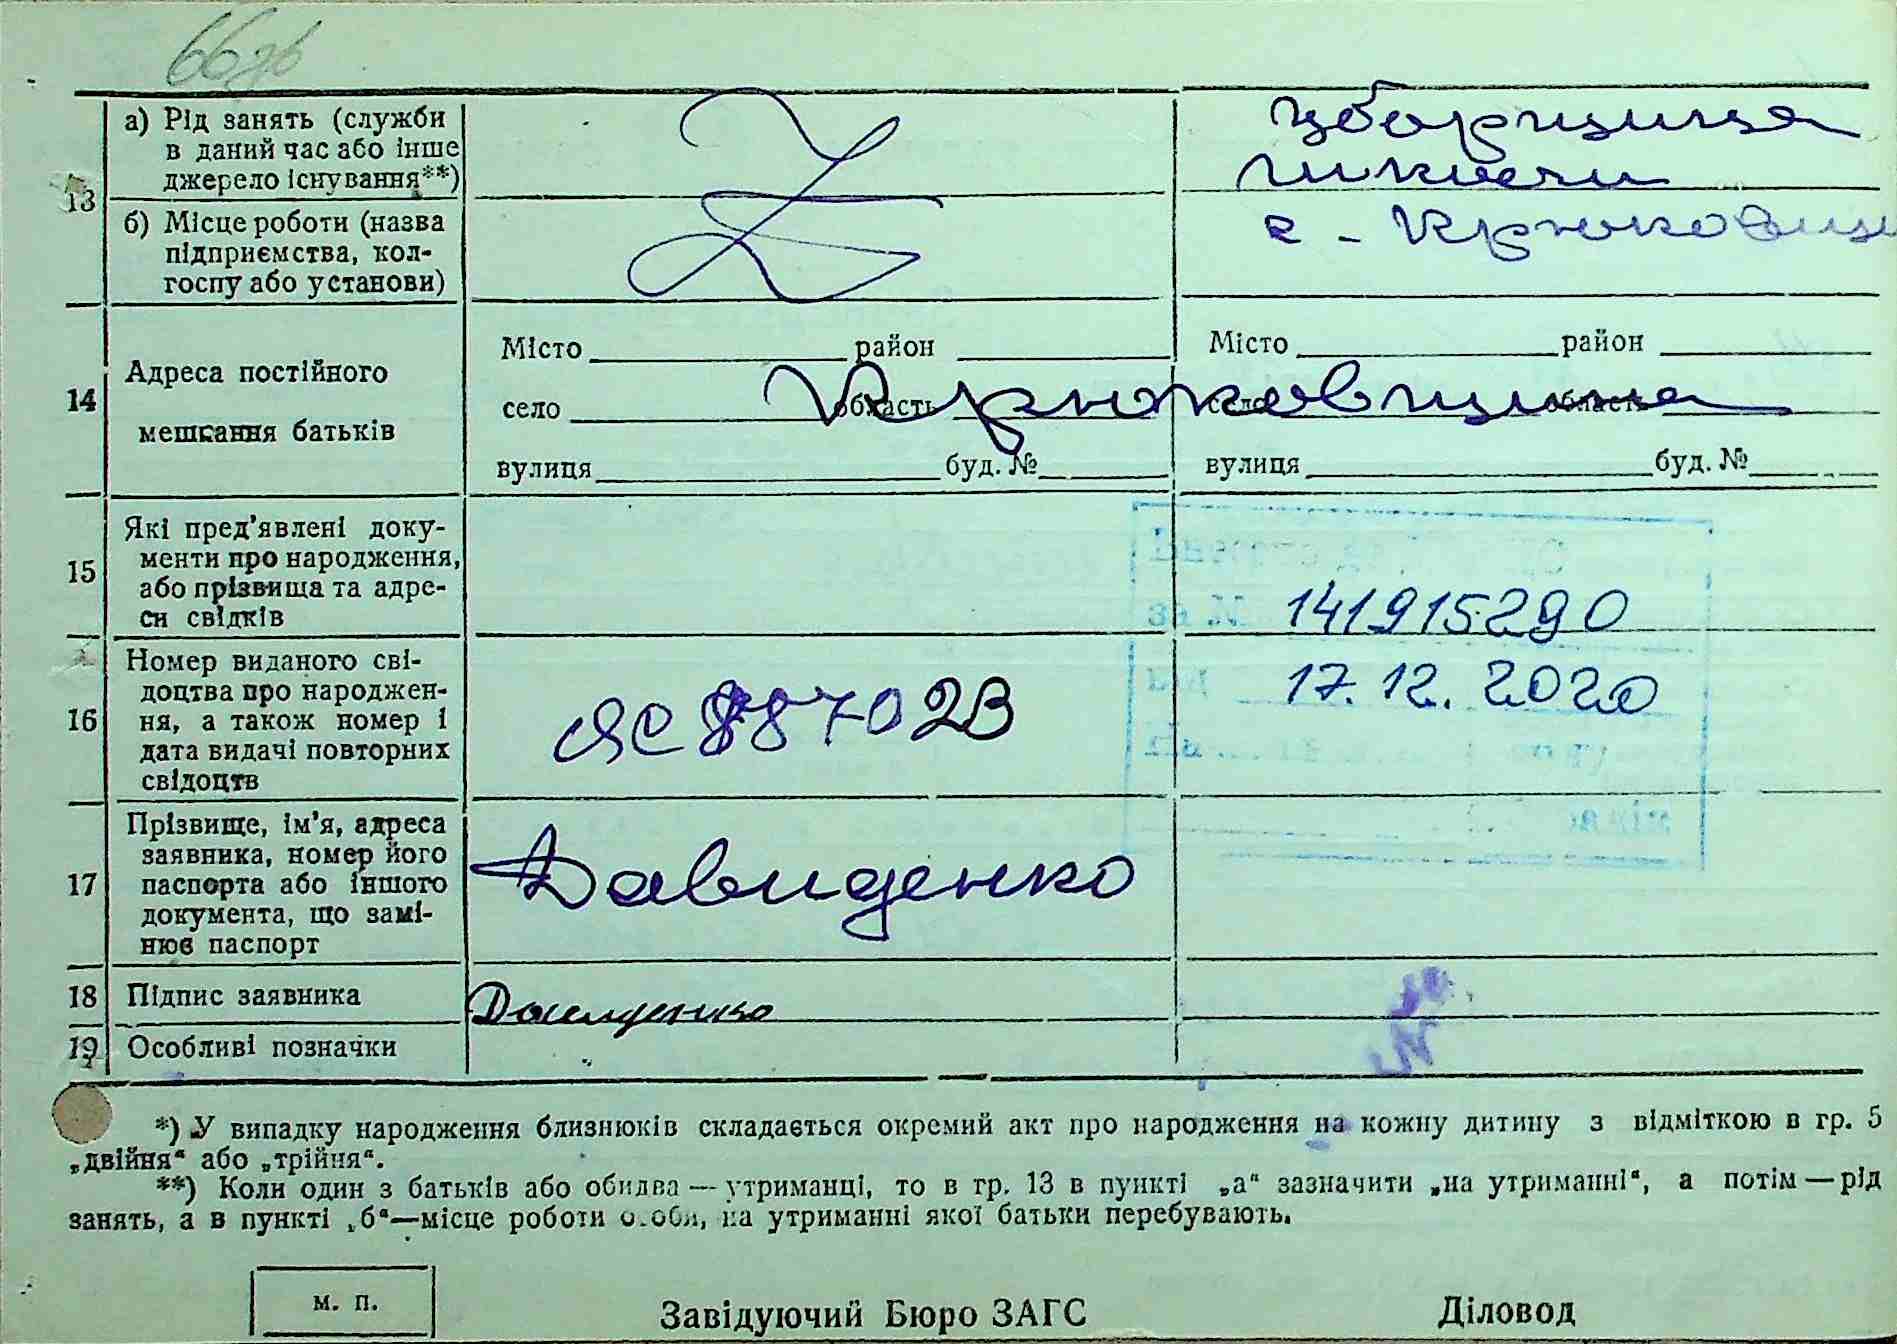 66зв
13
а) Рід занять (служби
в даний час або інше
джерело існування**)
уборщица
школи
б) Місце роботи (назва
підприємства, кол-
госпу або установи)
с - Крюковщи
14
Адреса постійного
мешкання батьків
Місто район
село область
вулиця буд. №
Місто район
село область
вулиця буд. №
Крюковщина
15
Які пред'явлені доку-
менти про народження,
або прізвища та адре-
си свідків
за № 141915290
16
Номер виданого сві-
доцтва про народжен-
ня, а також номер і
дата видачі повторних
свідоцтв
ЯС 887023
17.12.2020
17
Прізвище, ім'я, адреса
заявника, номер його
паспорта або іншого
документа, що замі-
нює паспорт
Давиденко
18
Підпис заявника
Давиденко
19
Особливі позначки
*) У випадку народження близнюків складається окремий акт про народження на кожну дитину з відміткою в гр. 5
„двійня“ або „трійня“.
**) Коли один з батьків або обидва — утриманці, то в гр. 13 в пункті „а“ зазначити „на утриманні“, а потім — рід
занять, а в пункті „б“—місце роботи особи, на утриманні якої батьки перебувають.
м. п.
Завідуючий Бюро ЗАГС
Діловод